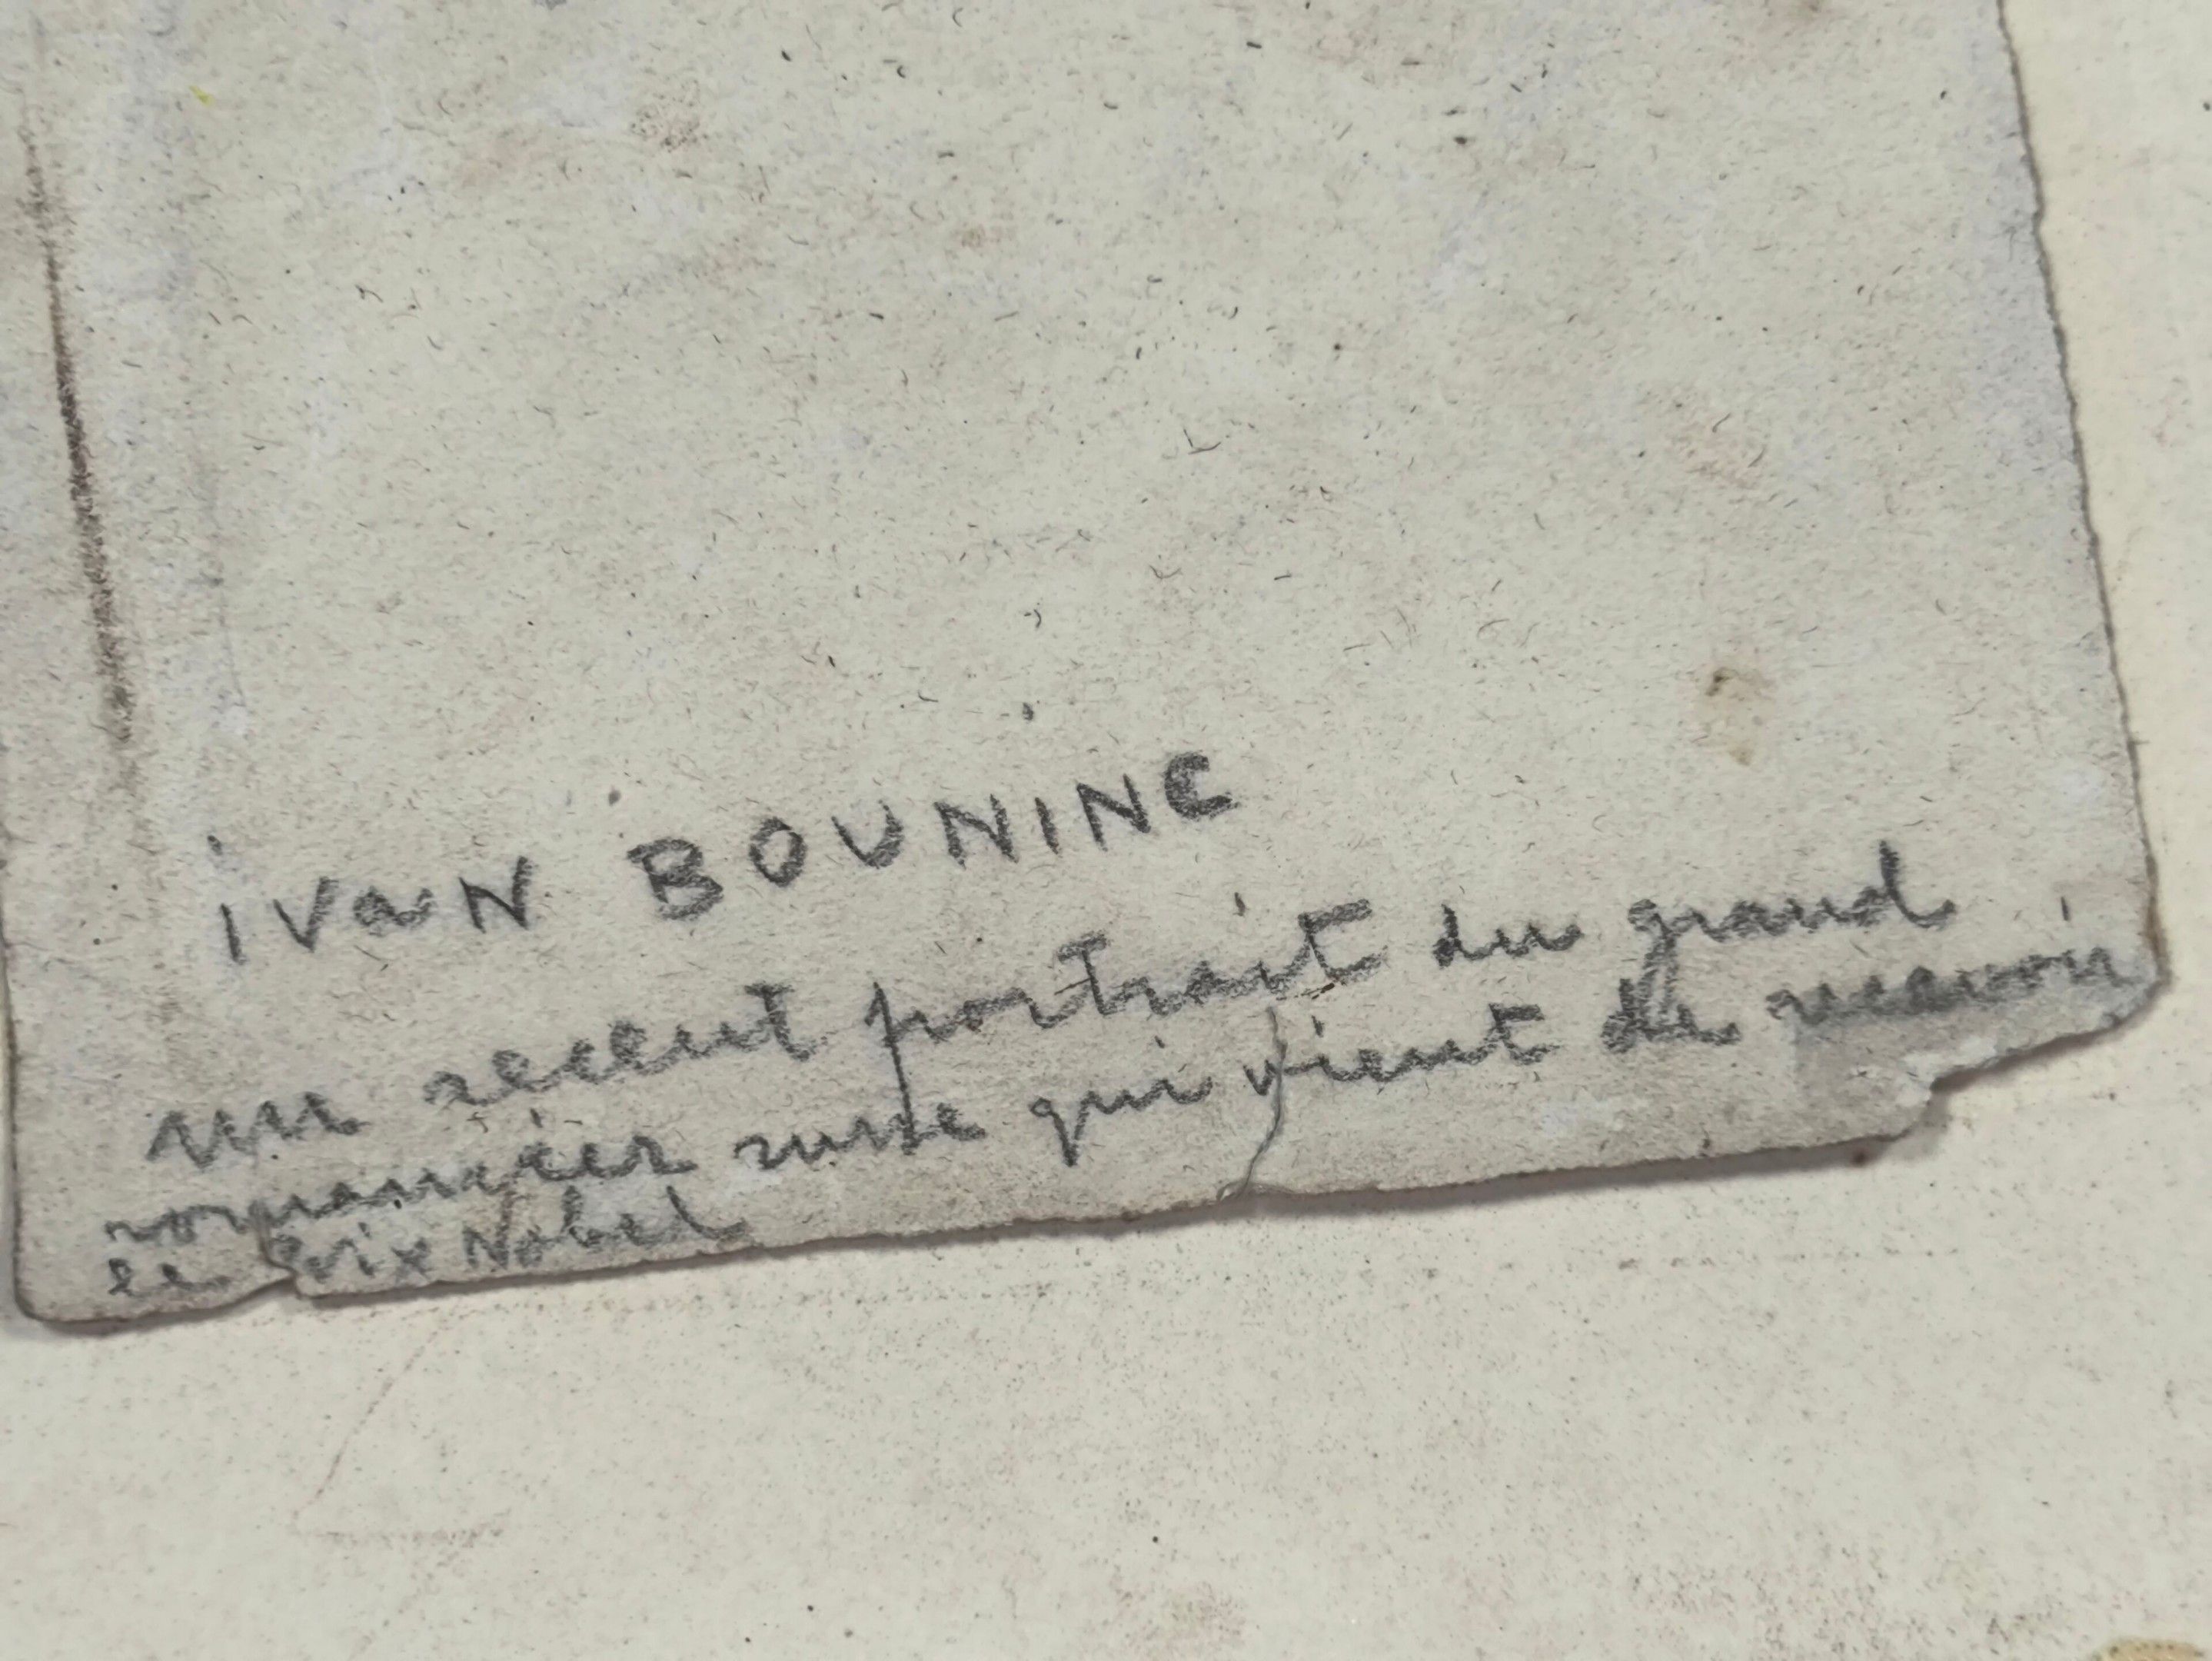 ivaN BOUNINE
un recent portrait du grand
romancier russe qui vient de recevoir
le Prix Nobel